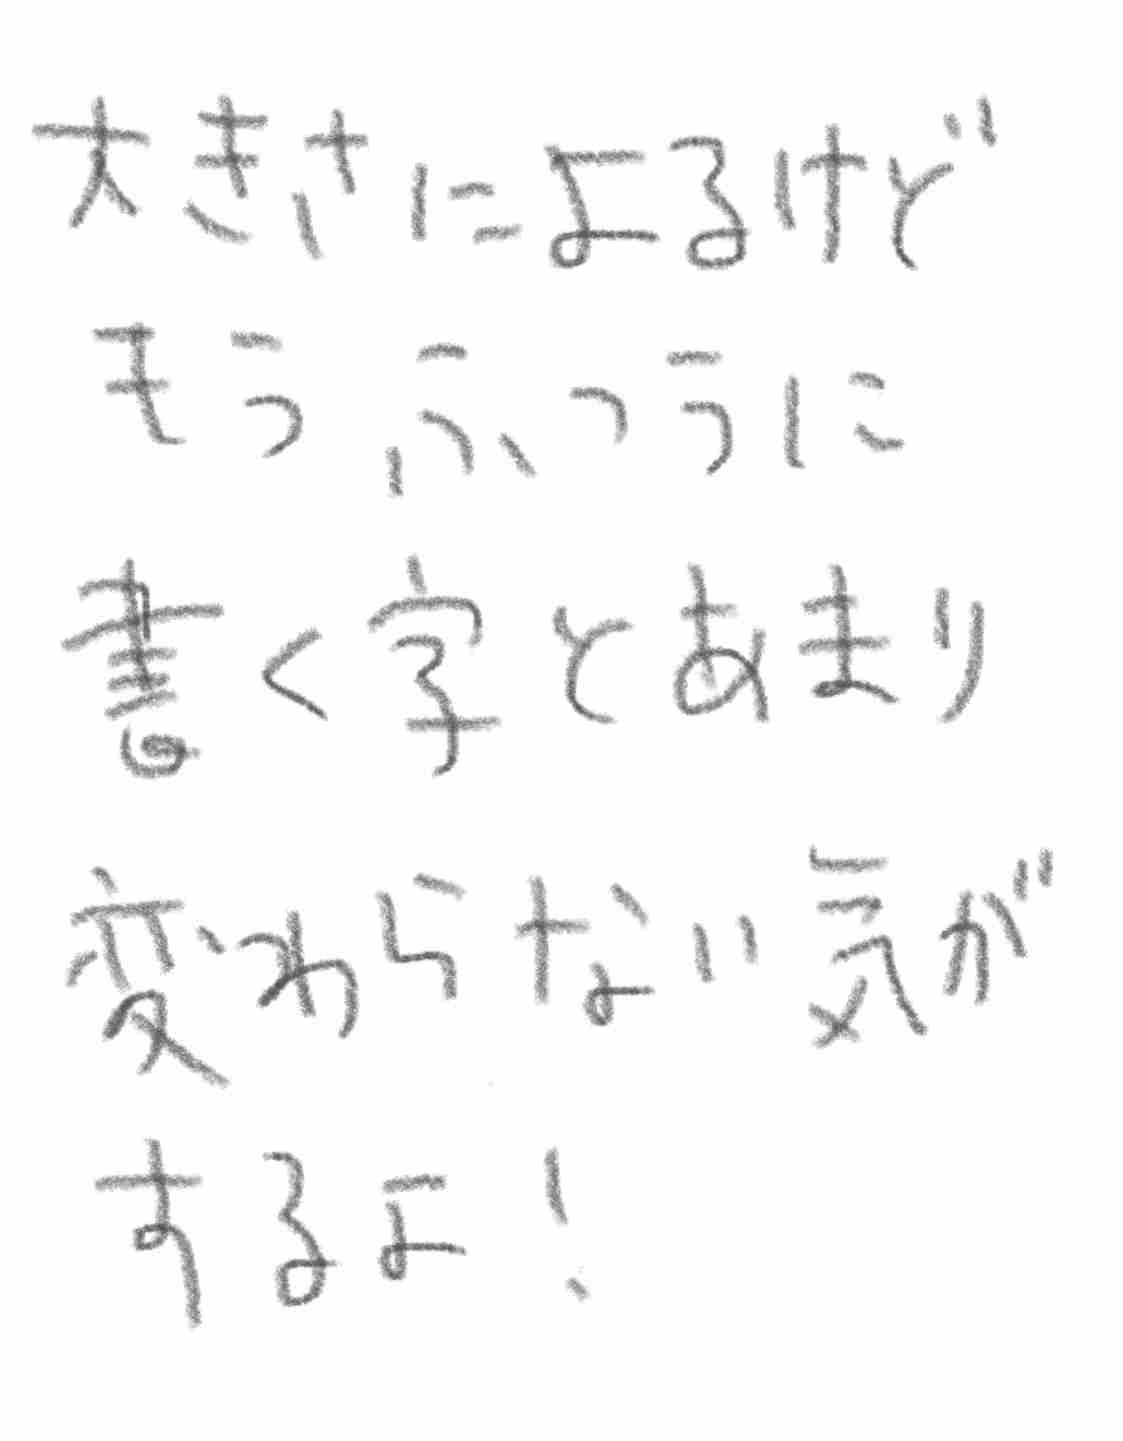 大きさによるけど
もうふつうに
書く字とあまり
変わらない気が
するよ!